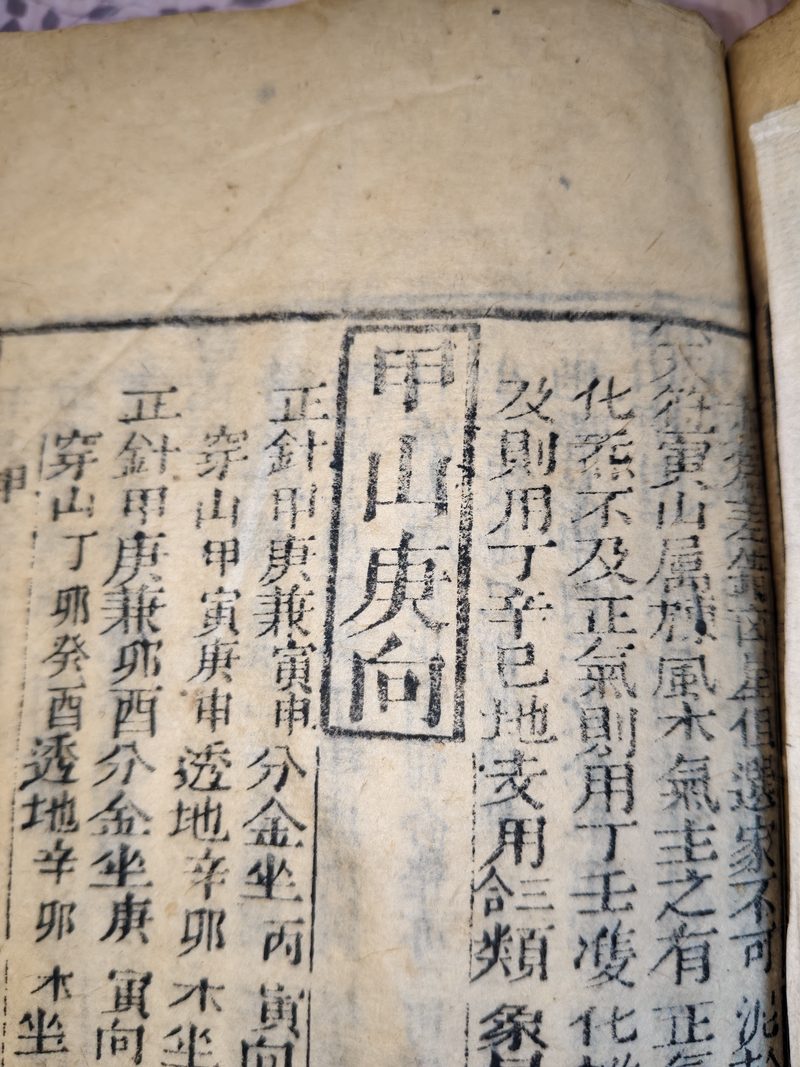 俱選家不可泥
在寅山属
風木氣主之有正氣
化炁不及正氣則用丁壬雙化
及則用丁辛巳地支用合三類象
甲山庚向
正針甲庚兼寅申分金坐丙寅向
穿山甲寅庚申透地辛卯木坐
正針甲庚兼卯酉分金坐庚寅向
穿山丁卯癸酉透地辛卯木坐
甲